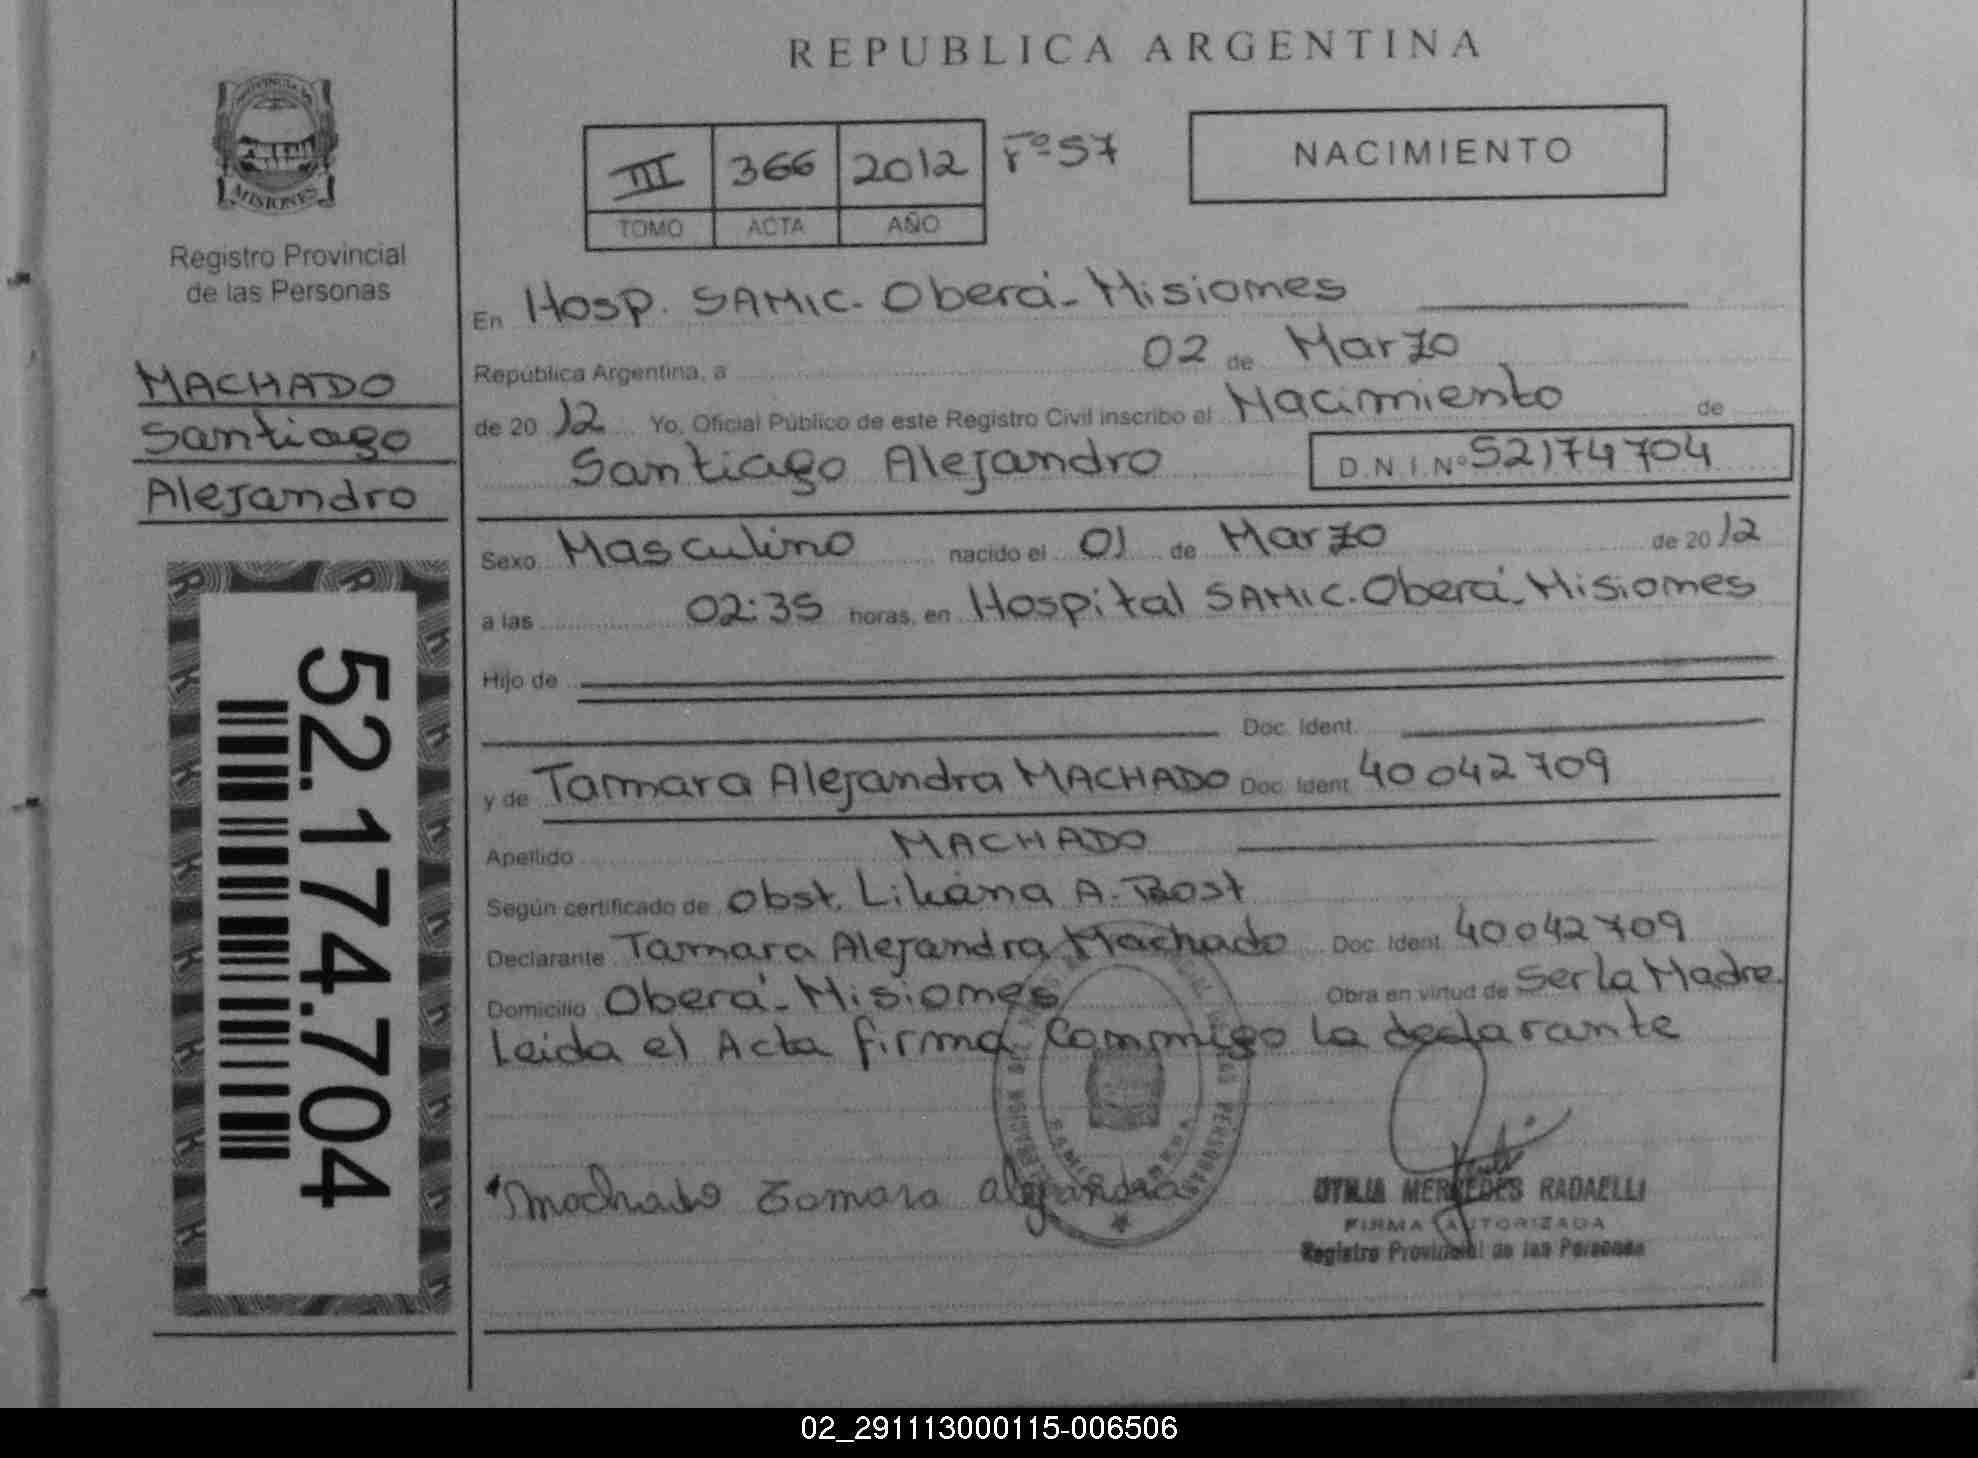 REPUBLICA ARGENTINA
PROVINCIA DE
MISIONES
Registro Provincial
de las Personas
MACHADO
Santiago
Alejandro
52.174.704
III 366 2012 Fº 57
TOMO ACTA AÑO
NACIMIENTO
En Hosp. SAMIC. Oberá - Misiones
República Argentina, a 02 de Marzo
de 2012 Yo, Oficial Público de este Registro Civil inscribo el Nacimiento de
Santiago Alejandro D.N.I.Nº 52174704
Sexo Masculino nacido el 01 de Marzo de 2012
a las 02:35 horas, en Hospital SAMIC. Oberá - Misiones
Hijo de
Doc. Ident.
y de Tamara Alejandra MACHADO Doc. Ident. 40042709
Apellido MACHADO
Según certificado de Obst. Liliana A. Bost
Declarante Tamara Alejandra Machado Doc. Ident. 40042709
Domicilio Oberá - Misiones Obra en virtud de Ser la Madre.
Leida el Acta firma Conmigo la declarante
Machado Tamara Alejandra
OTILIA MERCEDES RADAELLI
FIRMA AUTORIZADA
Registro Provincial de las Personas
02_291113000115-006506